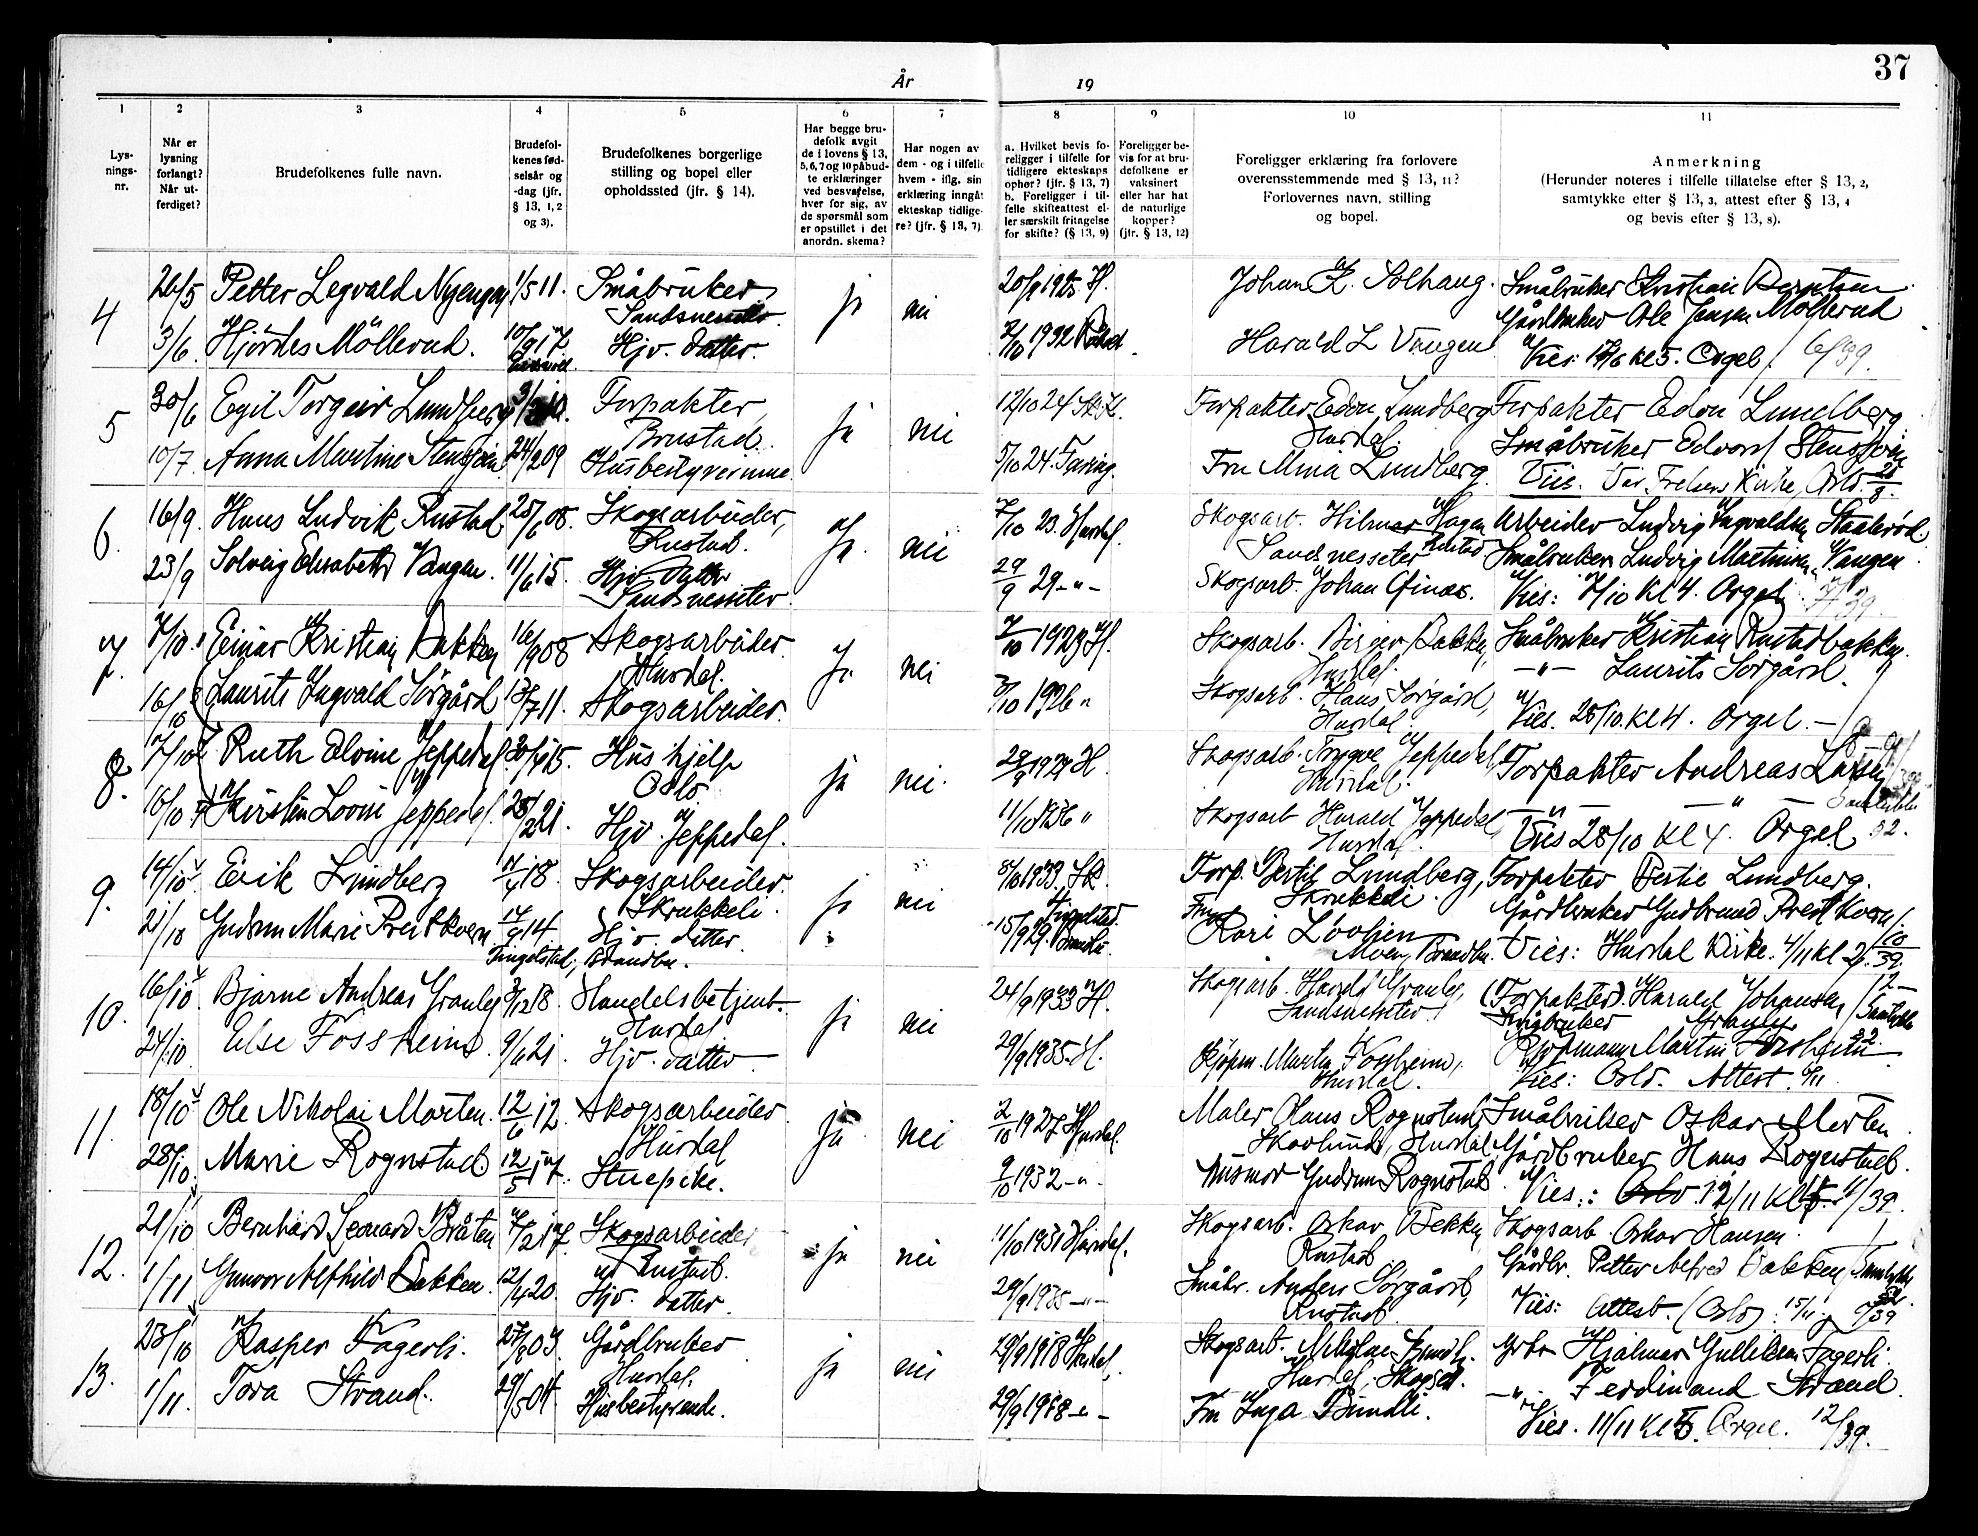 37
År
19
1
2
3
4
5
6
7
8
9
10
11
Lys-
nings-
nr.
Når er
lysning
forlangt?
Når ut-
ferdiget?
Brudefolkenes fulle navn.
Brudefol-
kenes fød-
selsår og
-dag (jfr.
§ 13, 1, 2
og 3).
Brudefolkenes borgerlige
stilling og bopel eller
opholdssted (jfr. § 14).
Har begge bru-
defolk avgit
de i lovens § 13,
5, 6, 7 og 10 påbud-
te erklæringer
ved besvarelse,
hver for sig, av
de spørsmål som
er opstillet i det
anordn. skema?
Har nogen av
dem - og i tilfelle
hvem - iflg. sin
erklæring inngåt
ekteskap tidlige-
re? (jfr. § 13, 7)
a. Hvilket bevis fo-
religger i tilfelle for
tidligere ekteskaps
ophør? (jfr. § 13, 7)
b. Foreligger i til-
felle skifteattest el-
ler særskilt fritagelse
for skifte? (§ 13, 9)
Foreligger be-
vis for at bru-
defolkene er
vaksinert
eller har hat
de naturlige
kopper?
(jfr. § 13, 12)
Foreligger erklæring fra forlovere
overensstemmende med § 13, 11?
Forlovernes navn, stilling
og bopel.
Anmerkning
(Herunder noteres i tilfelle tillatelse efter § 13, 2,
samtykke efter § 13, 3, attest efter § 13, 4
og bevis efter § 13, 8).
4
26/5 Petter Legvald Nyengen 1/5 11. Småbruker
Sandsnesseter.
ja nei
Johan K. Solhaug. Småbruker Kristian Berntsen
Gårdbruker Ole Jensen Möllerud
3/6. Hjördes Möllerud. 10/9 17 Hjv. datter.
2/10 1932 Harald L Vangen
Vies: kl 5. Orgel. 6/39.
5
30/6 Egil Torgeir Lundberg Forpakter,
Brustad.
ja nei
12/10 24 Forpakter Edon Lundberg
Hurdal.
Forpakter Edon Lundberg
10/7. Anna Martine 24/2 09 Husbestyrerinne
5/10 24. Fru Mina Lundberg.
Småbruker Edvard
Vies. Vår Frelsers Kirke, Oslo.
6.
16/9. Hans Ludvik Rustad 25/6 08. Skogsarbeider,
Rustad.
Ja. nei
7/10 23. Hurdal. Skogsarb. Hilmar Hagen
Sandsnesseter
Arbeider Ludvig Ingvaldsen
23/9 Solveig Elisabeth Vangen. 11/6 15. Hjv. datter
Sandsnesseter.
29/9 29 - " - Skogsarb. Johan
Småbruker Ludvig Martinsen Vangen
Vies: 7/10 kl 4. Orgel. 7/39.
7.
7/10. Einar Kristian Bakken 16/9 08 Skogsarbeider.
Hurdal.
Ja. nei
7/10 1923 H. Skogsarb. Birger Bakken,
Hurdal.
Småbruker Kristian Rustadbakken.
16/10 Laurits Ingvald Sörgård 13/7 11. Skogsarbeider.
3/10 1926 " Skogsarb. Hans Sörgård,
Hurdal.
- " - Laurits Sörgård.
Vies. 28/10. kl 4. Orgel. -
8.
17/10 Ruth Elvine Jeppedal. Hushjelp
Oslo
ja nei.
Skogsarb. Trygve Jeppedal,
Hurdal.
Forpakter Andreas Larsen
16/10 Kirstin Lovise Jeppedal. Hjv. Jeppedal.
11/10 1936 " Skogsarb Harald Jeppedal,
Hurdal.
Vies 28/10 kl 4. Orgel.
9.
14/10 Erik Lundberg 7/4 18. Skogsarbeider.
Skrukkeli.
ja nei
8/10 1933 Forp. Bertil Lundberg,
Skrukkeli.
Forpakter Bertil Lundberg.
21/10 Gudrun Marie Prestkvern 14/9 14 Hjv. datter.
Tingelstad, Brandbu.
15/9 29. Fru Kari
Moen, Brandbu.
Gårdbruker Gudbrand Prestkvern
Vies: Hurdal Kirke. 4/11 kl 2. 10/39.
10.
16/10 Bjarne Andreas Granley Handelsbetjent.
Hurdal
ja nei
24/9 1933 H. Skogsarb. Harald Granley,
Sandsnesseter
(Forpakter). Harald Johansen
Småbruker Granley
24/10 Else Fossheim 9/6 21. Hjv. datter
29/9 1935. H. Kjöpm. Martin Fossheim,
Hurdal.
Kjöpmann Martin Fossheim
Vies: Oslo. Attest.
11.
18/10 Ole Nikolai Morten. 12/6 12. Skogsarbeider
Hurdal
ja nei
2/10 1927 Hurdal. Maler Hans Rognstad,
Hurdal
Småbruker Oskar Morten
28/10. Marie Rognstad 12/5 17. Stuepike.
9/10 1932 - " - Husmor Gudrun Rognstad
Gårdbruker Hans Rognstad.
Vies: Oslo. 12/11 kl 5. 11/39.
12.
21/10 Bernhard Leonard Bråten 7/2 17. Skogsarbeider
Rustad.
ja nei
11/10 1931 Hurdal. Skogsarb. Oskar Bekken
Rustad
Skogsarb Oskar Hansen.
1/11 Gunvor Alfhild Bakken. 12/4 20. Hjv. datter.
29/9 1935 - " - Småbr. Anders Sörgård,
Rustad.
Gårdbr. Petter Alfred Bakken
Vies: Attest (Oslo) 15/11
13.
23/10 Kasper Fagerli. 27/8 03. Gårdbruker
Hurdal.
ja nei
29/9 1918 Hurdal. Skogsarb. Nikolai
Hurdal, Skogsarb.
Grbr Hjalmar Gulliksen Fagerli.
1/11. Tora Strand. 29/5 04. Husbestyrende.
29/9 1918 - " - Fru Inga Bundli.
- " - Ferdinand Strand.
Vies. 11/11 kl 5. Orgel. 12/39.